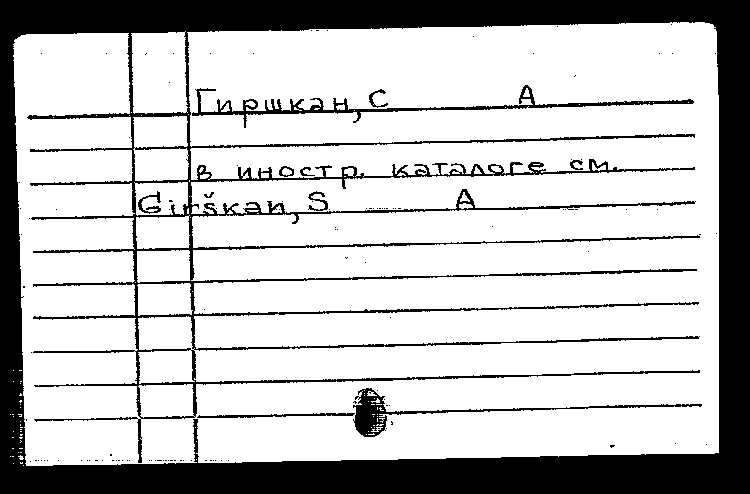 Гиршкан, С A
в иностр. каталоге см.
Girškan, S A